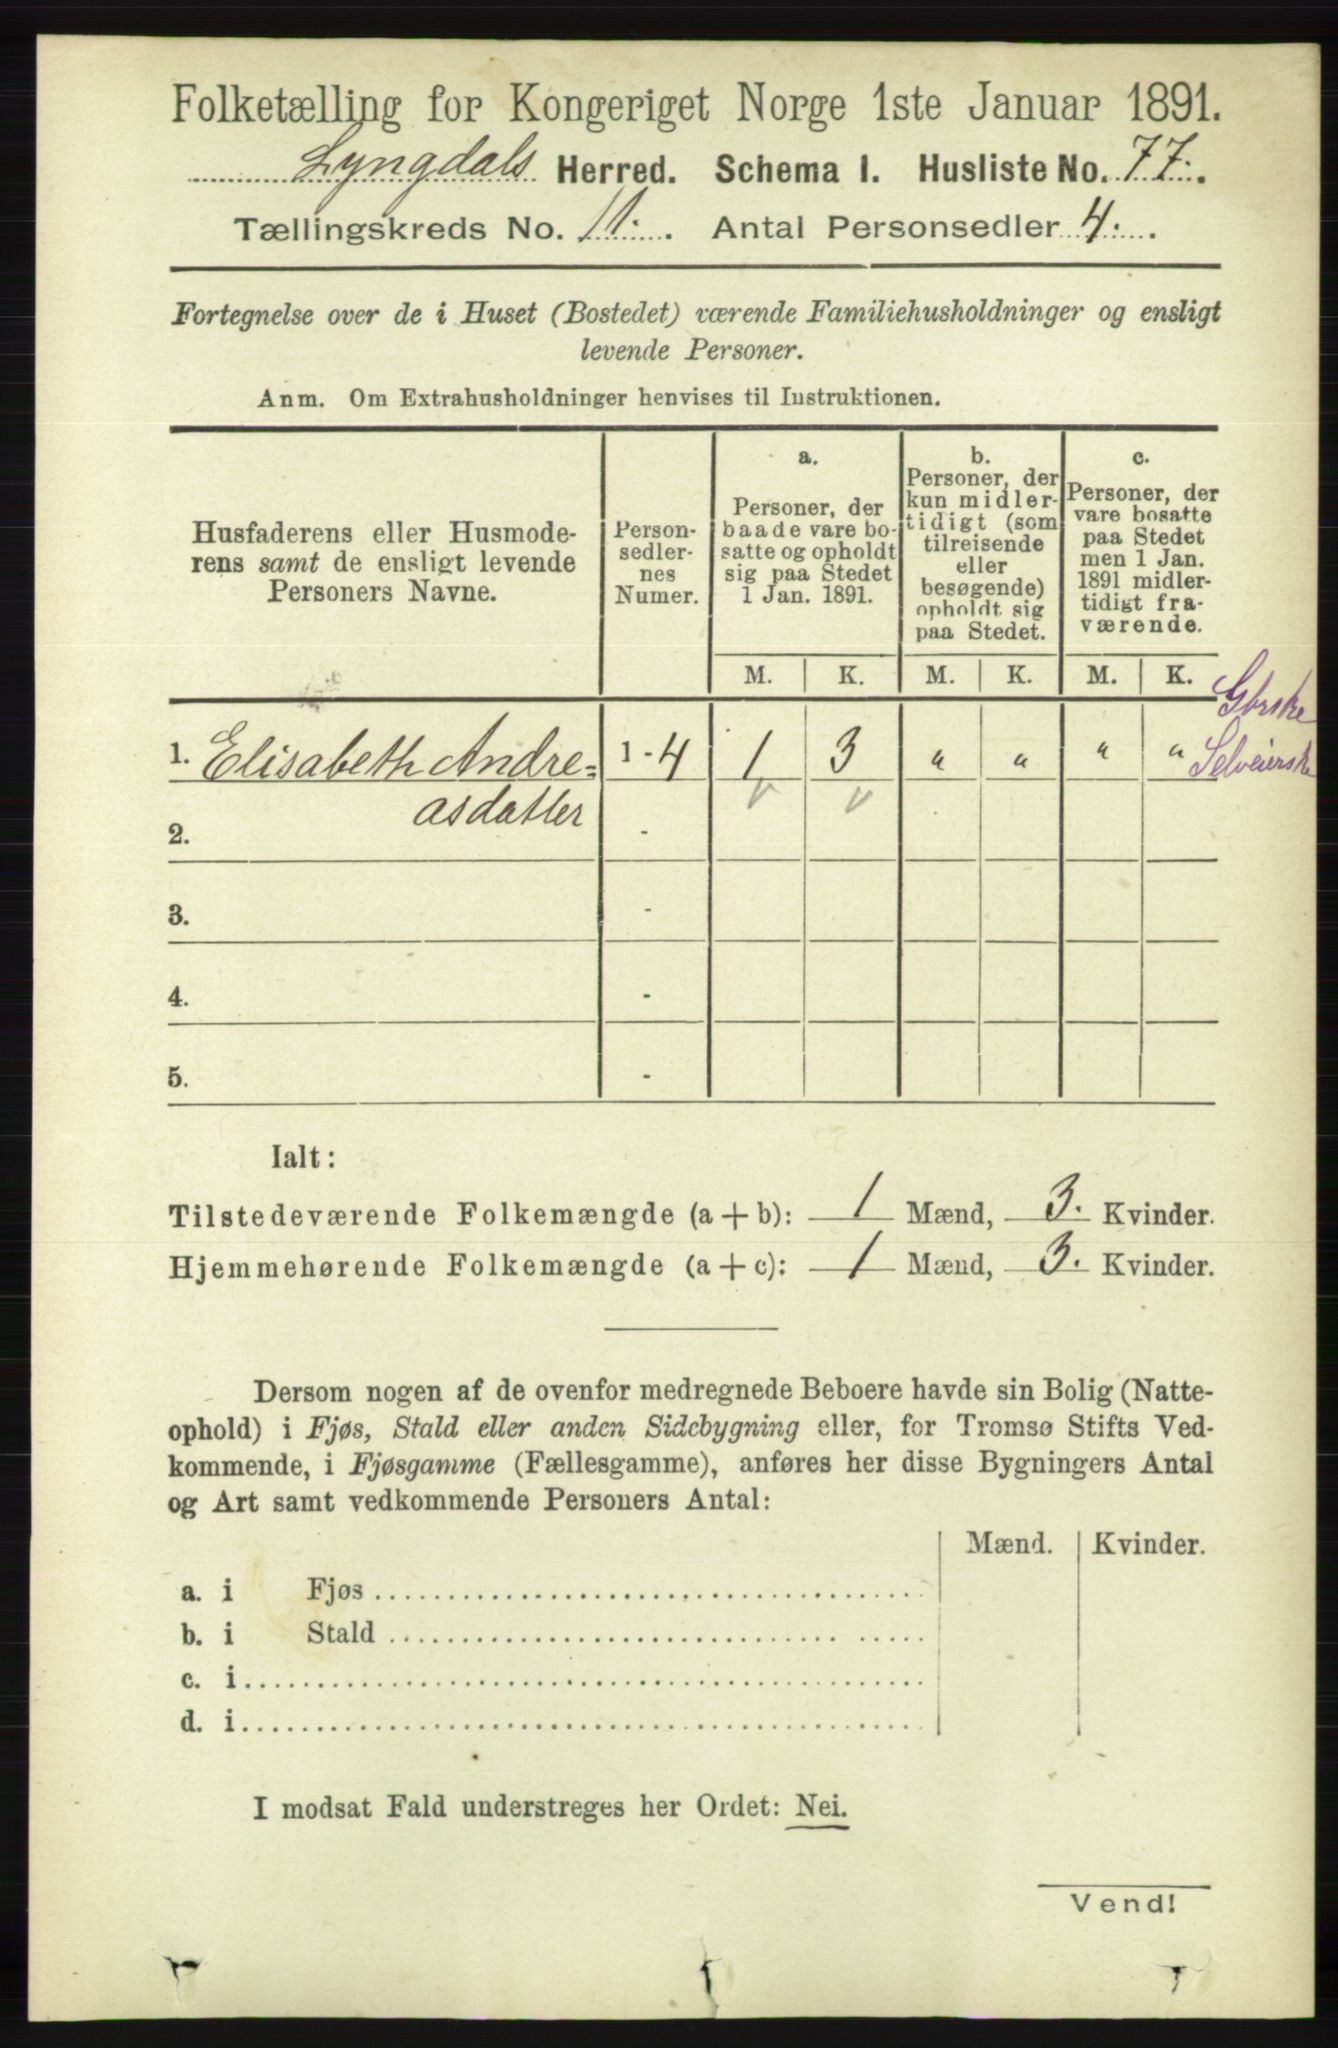 Folketælling for Kongeriget Norge 1ste Januar 1891.
Lyngdals Herred. Schema 1. Husliste No. 77.
Tællingskreds No. 11. Antal Personsedler 4.
Fortegnelse over de i Huset (Bostedet) værende Familiehusholdninger og ensligt
levende Personer.
Anm. Om Extrahusholdninger henvises til Instruktionen.
Husfaderens eller Husmode-
rens samt de ensligt levende
Personers Navne.
Person-
sedler-
nes
Numer.
a.
Personer, der
baade vare bo-
satte og opholdt
sig paa Stedet
1 Jan. 1891.
b.
Personer, der
kun midler-
tidigt (som
tilreisende
eller
besøgende)
opholdt sig
paa Stedet.
c.
Personer, der
vare bosatte
paa Stedet
men 1 Jan.
1891 midler-
tidigt fra-
værende.
M. K. M. K. M. K.
Gbrske
Selveierske
1. Elisabeth Andre= 1 - 4 1 3 " " " "
asdatter
2. -
3. -
4. -
5. -
Ialt:
Tilstedeværende Folkemængde (a + b): 1 Mænd, 3. Kvinder.
Hjemmehørende Folkemængde (a + c): 1 Mænd, 3. Kvinder.
Dersom nogen af de ovenfor medregnede Beboere havde sin Bolig (Natte-
ophold) i Fjøs, Stald eller anden Sidebygning eller, for Tromsø Stifts Ved-
kommende, i Fjøsgamme (Fællesgamme), anføres her disse Bygningers Antal
og Art samt vedkommende Personers Antal:
Mænd. Kvinder.
a. i Fjøs
b. i Stald
c. i
d. i
I modsat Fald understreges her Ordet: Nei.
Vend!